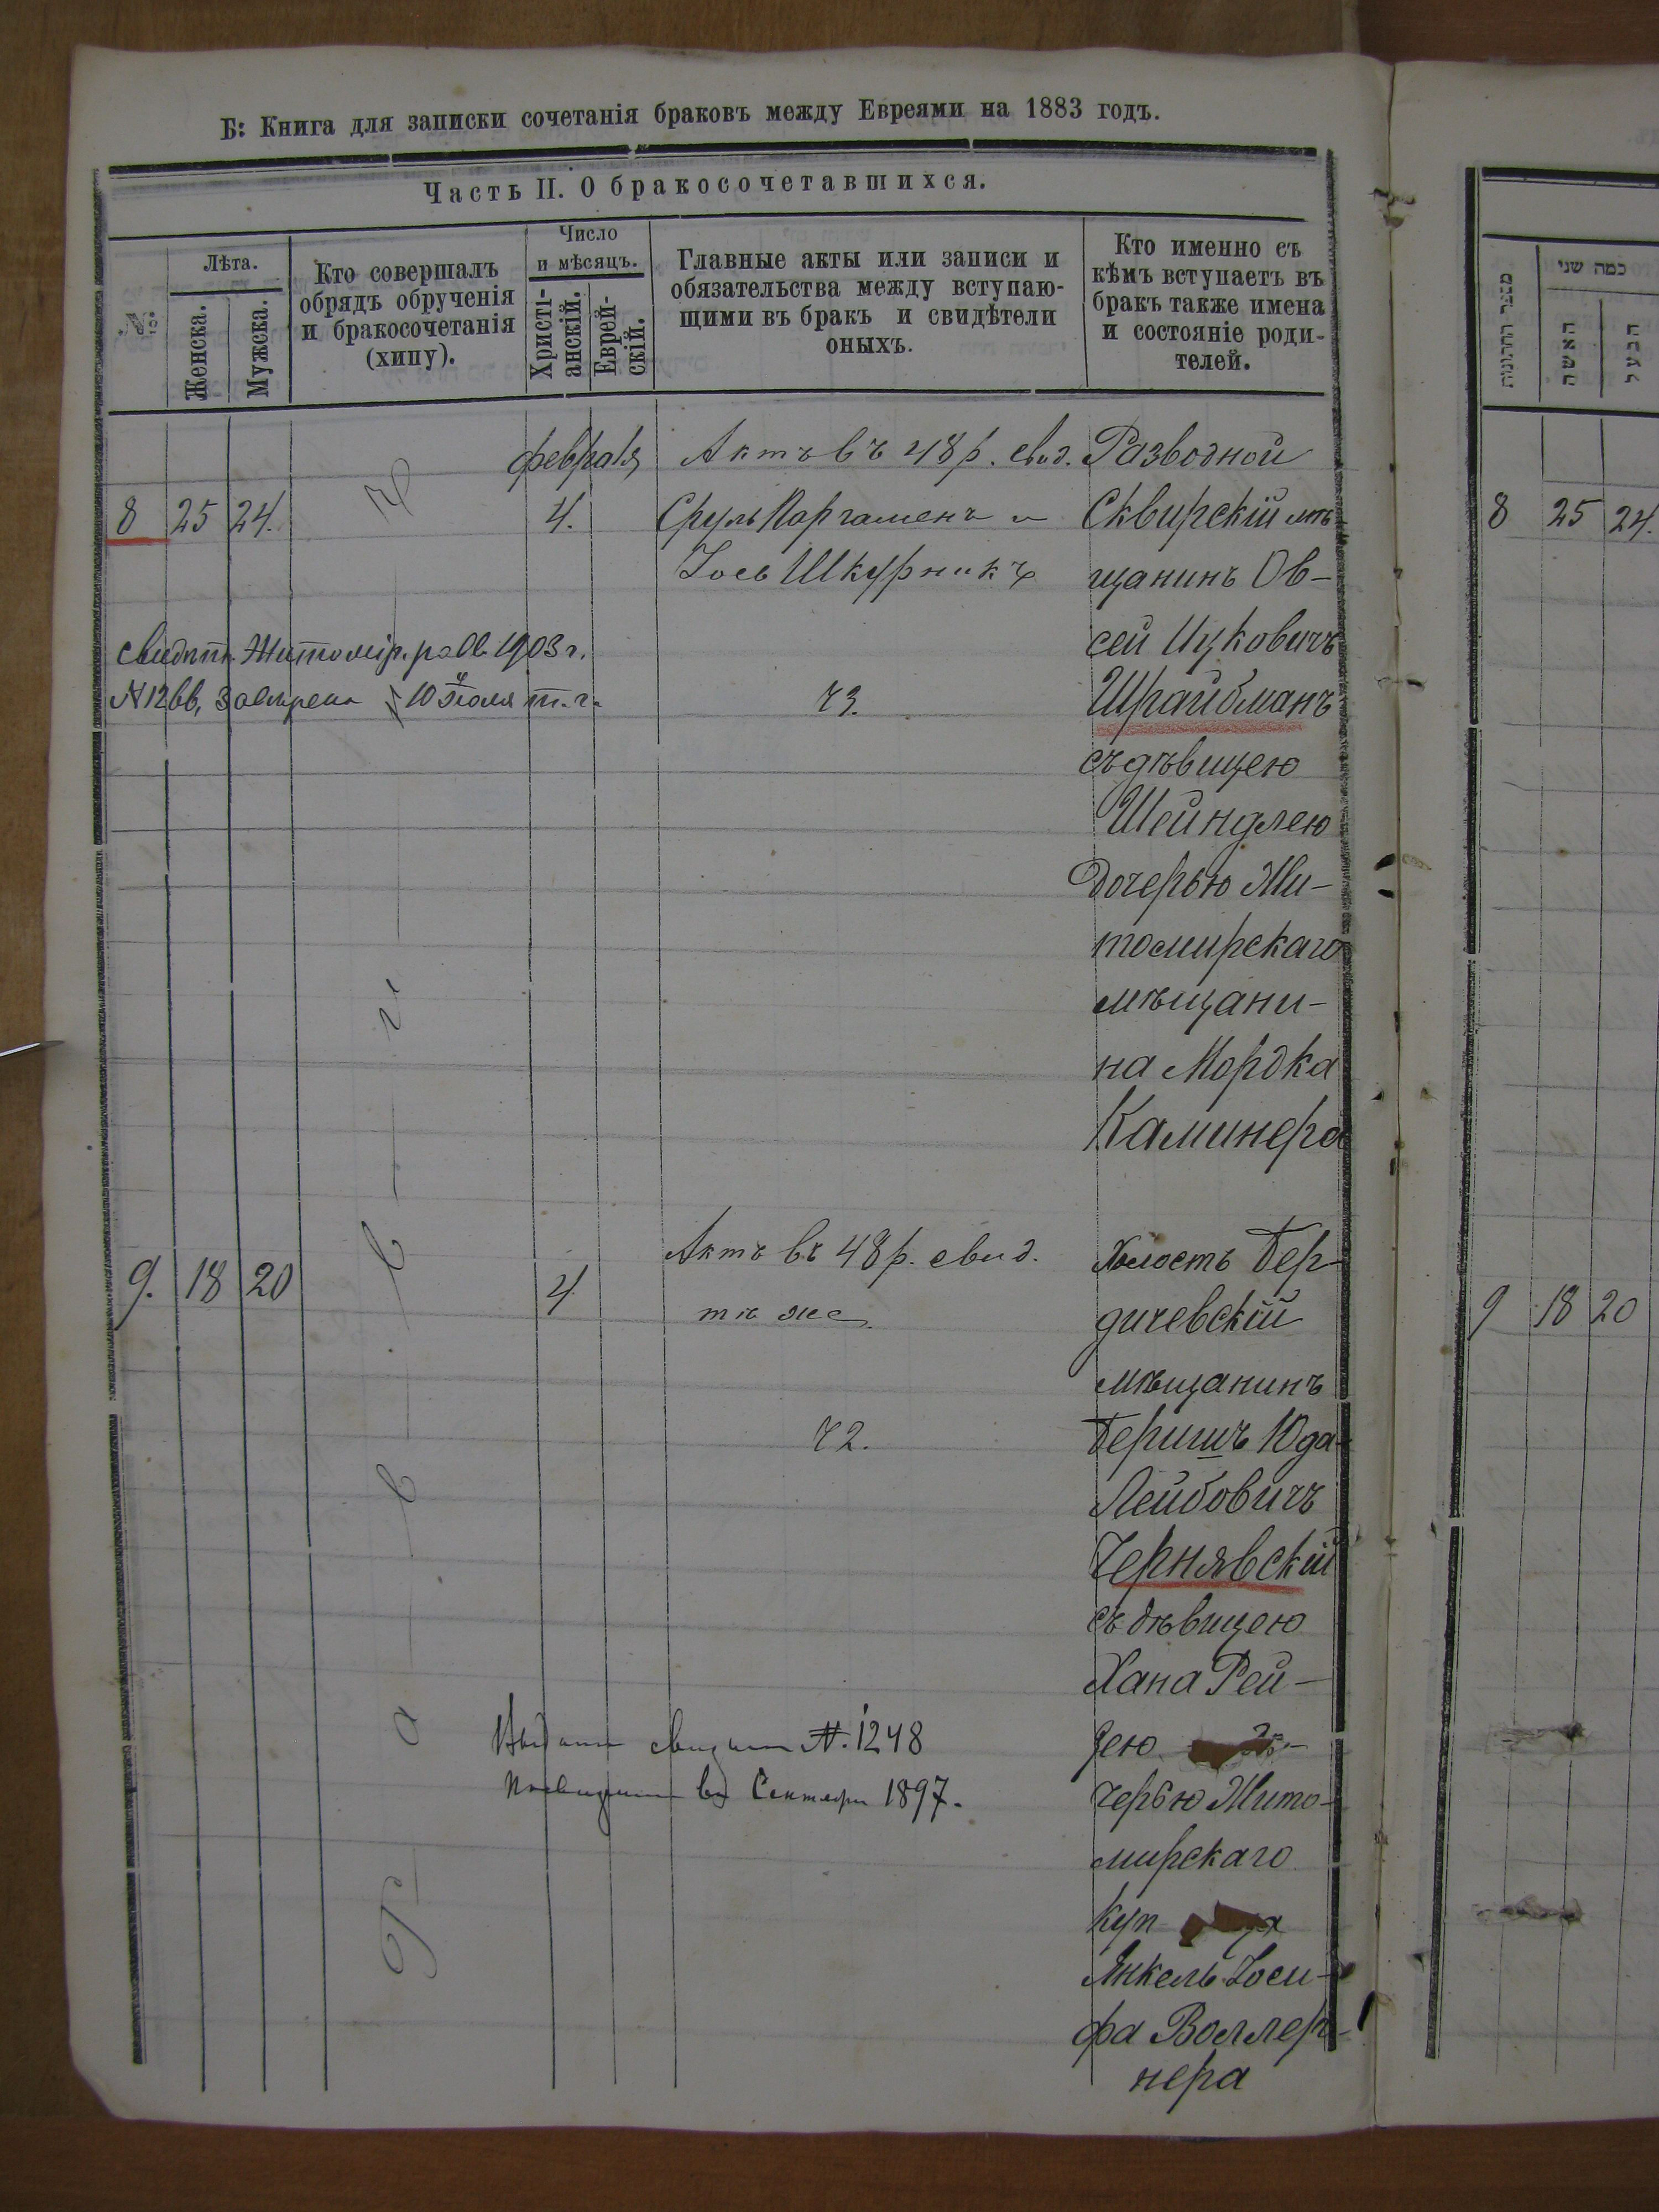 Б: Книга для записки сочетанія браковъ между Евреями на 1883 годъ.
Часть II. О бракосочетавшихся.
№:
Лѣта.
Женска.
Мужска.
Кто совершалъ
обрядъ обрученія
и бракосочетанія
(хипу).
Число
и мѣсяцъ.
Христі-
анскій.
Еврей-
скій.
Главные акты или записи и
обязательства между вступаю-
щими въ бракъ и свидѣтели
оныхъ.
Кто именно съ
кѣмъ вступаетъ въ
бракъ также имена
и состояніе роди-
телей.
8 25 24.
февраля
4.
Актъ въ 48 р. свид.
Сруль Паргаменъ и
Іось Шкурникъ
Ч3.
Разводной
Сквирскій мѣ
щанинъ Ов-
сей Ицковичъ
Шрайбманъ
съ дѣвицею
Шейндлею
дочерью Жи-
томирскаго
мѣщани-
на Мордка
Каминера
свидѣт. Житомір. равв. 1903 г.
10 Іюля т. г.
9. 18 20
4
Актъ въ 48 р. свид.
тѣ же.
Ч2.
Холостъ Бер-
дичевскій
мѣщанинъ
Беришъ Юда-
Лейбовичъ
Чернявскій
съ дѣвицею
Хана Рей-
зею до-
черью Жито-
мирскаго
куп
Янкель Іоси-
фа Воллер-
нера
№. 1248
въ Сентябрѣ 1897.
Р а в в и ч
מספר החתונות
כמה שני
האשה
הבעל
8 25 24.
9 18 20